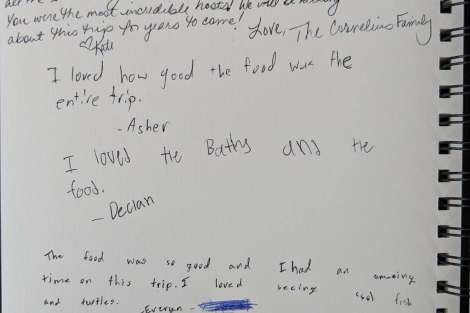 You were the most incredible hosts! We will be talking
about this trip for years to come!
♡Kate
Love, The Cornelius Family
I loved how good the food was the
entire trip.
-Asher
I loved the Baths and the
food.
-Declan
The food was so good and I had an amazing
time on this trip. I loved seeing cool fish
and turtles.
-Everyn -